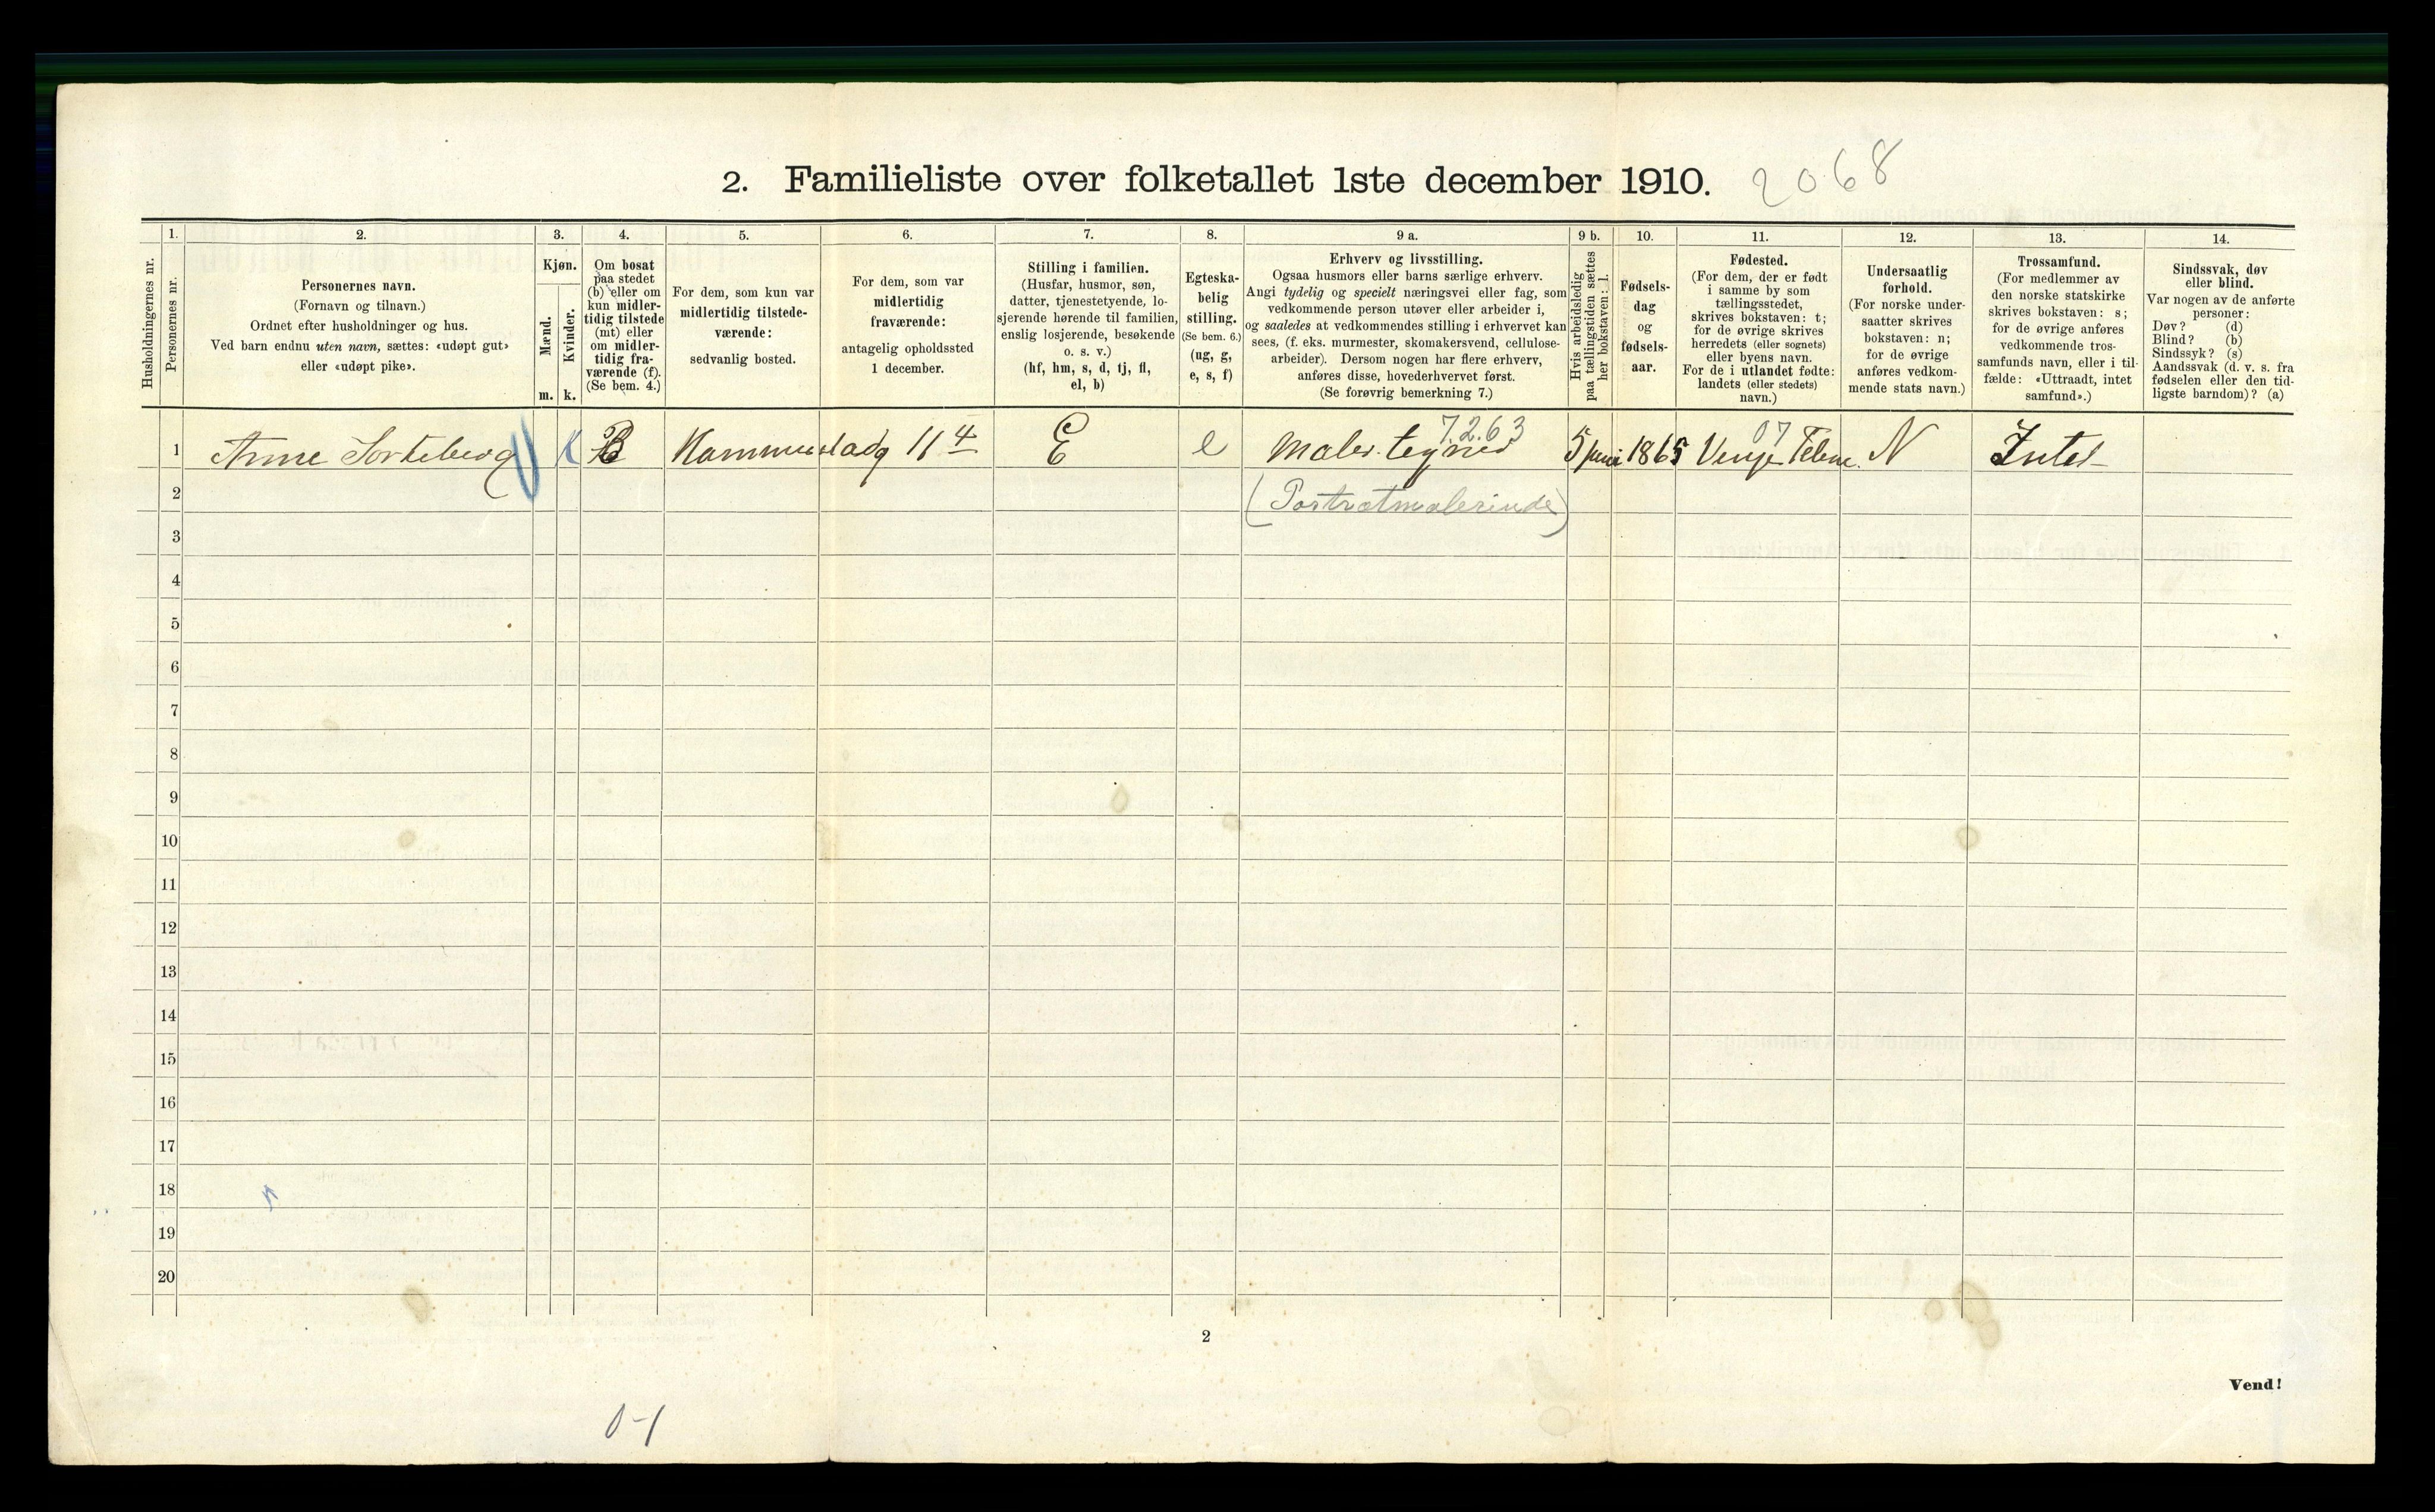 2. Familieliste over folketallet 1ste december 1910.
2068
Husholdningernes nr.
1.
Personernes nr.
2.
Personernes navn.
(Fornavn og tilnavn.)
Ordnet efter husholdninger og hus.
Ved barn endnu uten navn, sættes: «udøpt gut»
eller «udøpt pike».
3.
Kjøn.
Mænd.
Kvinder.
m. k.
4.
Om bosat
paa stedet
(b) eller om
kun midler-
tidig tilstede
(mt) eller
om midler-
tidig fra-
værende (f).
(Se bem. 4.)
5.
For dem, som kun var
midlertidig tilstede-
værende:
sedvanlig bosted.
6.
For dem, som var
midlertidig
fraværende:
antagelig opholdssted
1 december.
7.
Stilling i familien.
(Husfar, husmor, søn,
datter, tjenestetyende, lo-
sjerende hørende til familien,
enslig losjerende, besøkende
o. s. v.)
(hf, hm, s, d, tj, fl,
el, b)
8.
Egteska-
belig
stilling.
(Se bem. 6.)
(ug, g,
e, s, f)
9 a.
Erhverv og livsstilling.
Ogsaa husmors eller barns særlige erhverv.
Angi tydelig og specielt næringsvei eller fag, som
vedkommende person utøver eller arbeider i,
og saaledes at vedkommendes stilling i erhvervet kan
sees, (f. eks. murmester, skomakersvend, cellulose-
arbeider). Dersom nogen har flere erhverv,
anføres disse, hovederhvervet først.
(Se forøvrig bemerkning 7.)
9 b.
Hvis arbeidsledig
paa tællingstiden sættes
her bokstaven: l.
10.
Fødsels-
dag
og
fødsels-
aar.
11.
Fødested.
(For dem, der er født
i samme by som
tællingsstedet,
skrives bokstaven: t;
for de øvrige skrives
herredets (eller sognets)
eller byens navn.
For de i utlandet fødte:
landets (eller stedets)
navn.)
12.
Undersaatlig
forhold.
(For norske under-
saatter skrives
bokstaven: n;
for de øvrige
anføres vedkom-
mende stats navn.)
13.
Trossamfund.
(For medlemmer av
den norske statskirke
skrives bokstaven: s;
for de øvrige anføres
vedkommende tros-
samfunds navn, eller i til-
fælde: «Uttraadt, intet
samfund».)
14.
Sindssvak, døv
eller blind.
Var nogen av de anførte
personer:
Døv? (d)
Blind? (b)
Sindssyk? (s)
Aandssvak (d. v. s. fra
fødselen eller den tid-
ligste barndom)? (a)
7.2.63
07
1 Anne Sorteberg K B 11 4 E e Maler. 5 juni 1865 N Intet
2 (Portrætmalerinde)
3
4
5
6
7
8
9
10
11
12
13
14
15
16
17
18
19
20
2
Vend!
0-1